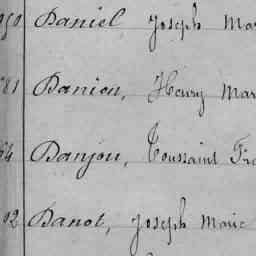 Daniel Joseph Mar
81 Danion, Henry Mar
64 Danjou, Toussaint Fra
92 Danot, Joseph Marie